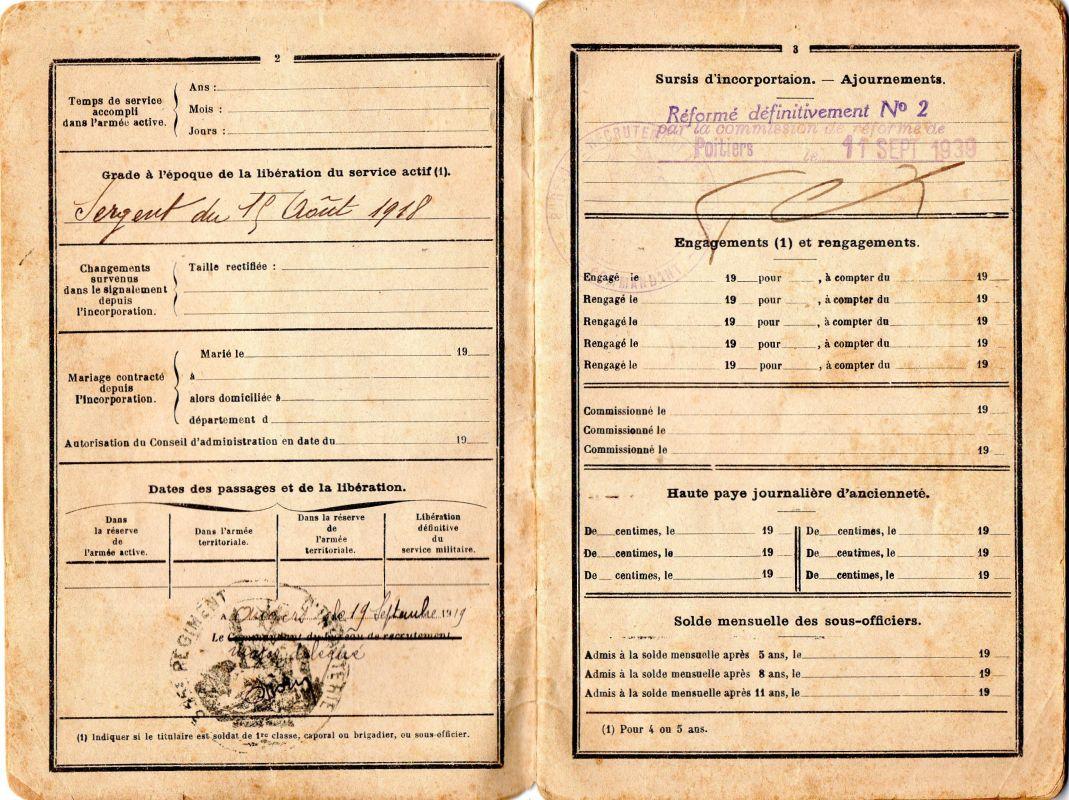 2
Temps de service
accompli
dans l'armée active.
Ans :
Mois :
Jours :
Grade à l'époque de la libération du service actif (1).
Sergent du 15 Août 1918
Changements
survenus
dans le signalement
depuis
l'incorporation.
Taille rectifiée :
Mariage contracté
depuis
l'incorporation.
Marié le 19
à
alors domiciliée à
département d
Autorisation du Conseil d'administration en date du 19
Dates des passages et de la libération.
Dans
la réserve
de
l'armée active.
Dans l'armée
territoriale.
Dans la réserve
de
l'armée
territoriale.
Libération
définitive
du
service militaire.
A le 19 Septembre 1919
Le Commandant du bureau de recrutement
REGIMENT D'INFANTERIE
(1) Indiquer si le titulaire est soldat de 1re classe, caporal ou brigadier, ou sous-officier.
3
Sursis d'incorportaion. — Ajournements.
Réformé définitivement No 2
par la commission de réforme de
Poitiers le 11 SEPT 1939
RECRUTEMENT
COMMANDANT
Engagements (1) et rengagements.
Engagé le 19 pour , à compter du 19
Rengagé le 19 pour , à compter du 19
Rengagé le 19 pour , à compter du 19
Rengagé le 19 pour , à compter du 19
Rengagé le 19 pour , à compter du 19
Commissionné le 19
Commissionné le 19
Commissionné le 19
Haute paye journalière d'ancienneté.
De centimes, le 19 De centimes, le 19
De centimes, le 19 De centimes, le 19
De centimes, le 19 De centimes, le 19
Solde mensuelle des sous-officiers.
Admis à la solde mensuelle après 5 ans, le 19
Admis à la solde mensuelle après 8 ans, le 19
Admis à la solde mensuelle après 11 ans, le 19
(1) Pour 4 ou 5 ans.